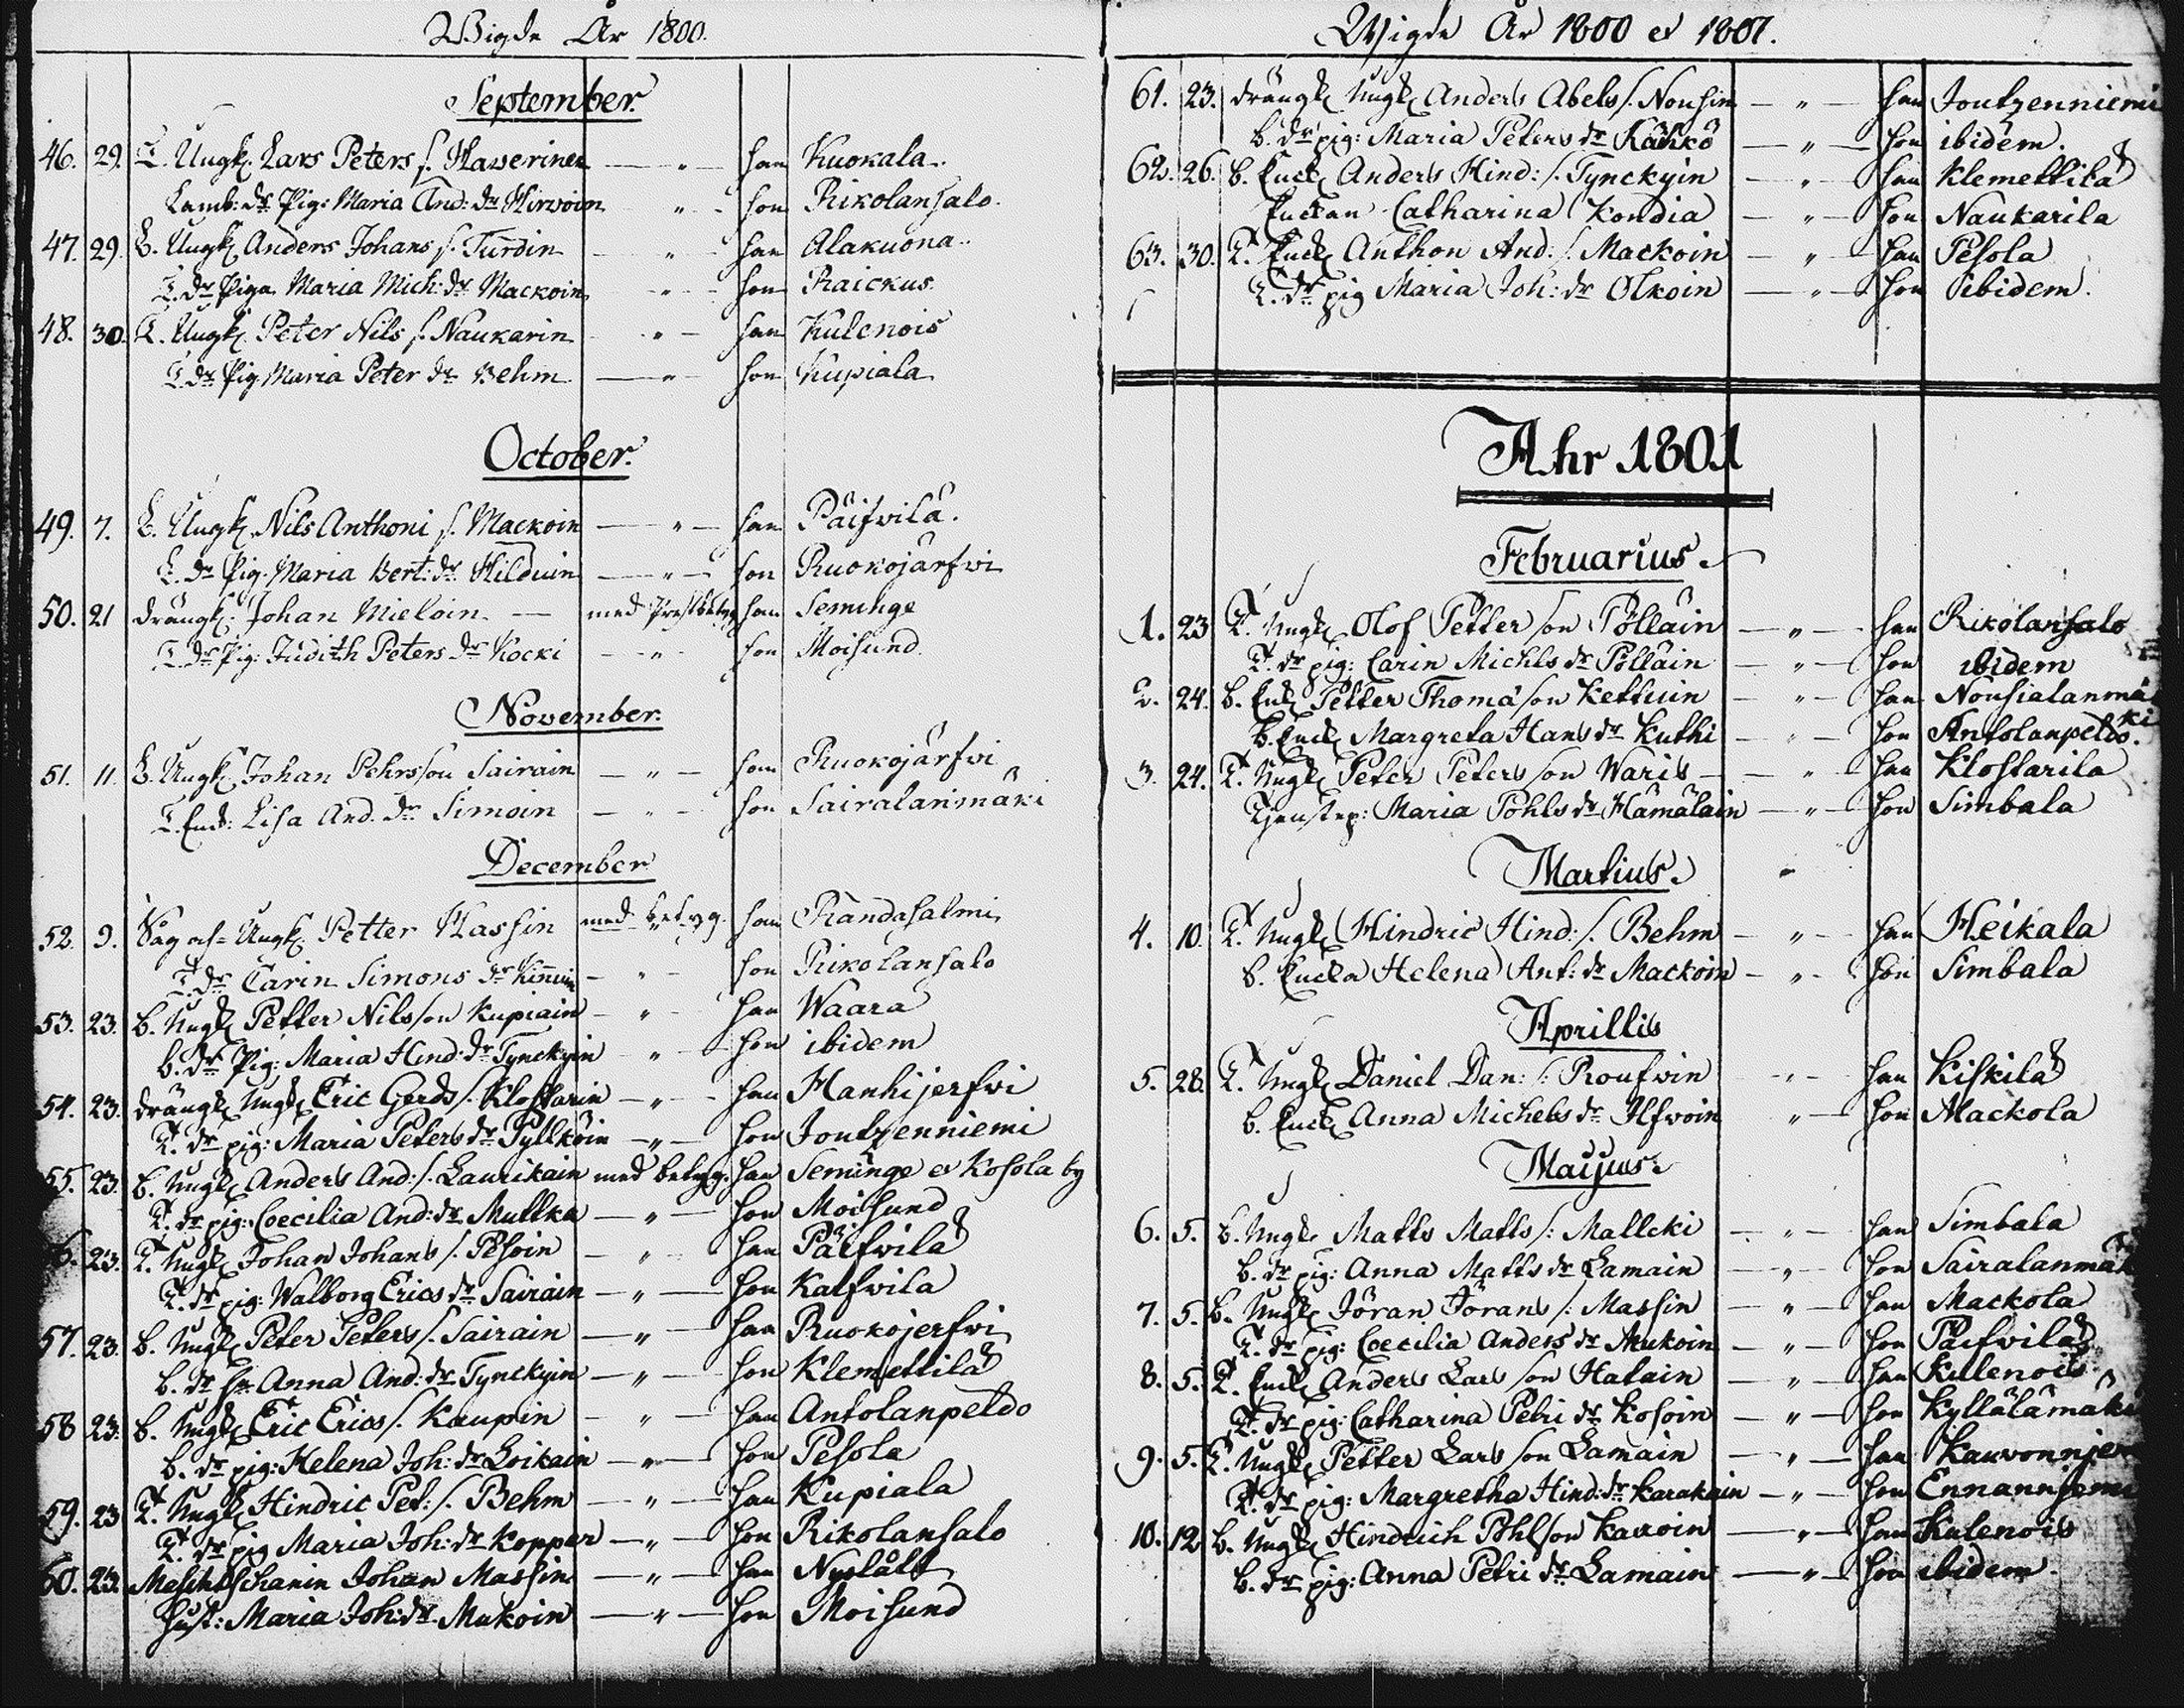 Wigde År 1800.
September.
46. 29. T. Ungk. Lars Peters s. Hawerinen — „ — han Kuokala.
Lamb: dr Pig: Maria And: dr Hirwoin „ — hon Rikolansalo.
47. 29. B. Ungk. Anders Johans s. Turdin — „ — han Alakuona.
T. dr Piga Maria Mich: dr Mackoin — „ — hon Raickus.
48. 30. T. Ungk. Peter Nils s. Naukarin — „ — han Kulenois
T. dr Pig. Maria Peter dr Behm — „ — hon Kupiala
October.
49. 7. B. Ungk. Nils Anthoni s. Mackoin — „ — han Päifwilä.
B. dr Pig. Maria Bert: dr Hilduin — „ — hon Ruokojärfwi
50. 21 drängk. Johan Mieloin — med Prestbetyg han Seminge
T. dr Pig: Judith Peters dr Kocki — „ — hon Moisund.
November.
51. 11. B. Ungk. Johan Pehrsson Sairain — „ — han Ruokojärfwi
T. Enck: Lisa And. dr Simoin — „ — hon Sairalanmäki
December
52. 9. Ungk. Petter Hassin med betyg. han Randasalmi
T. dr Carin Simons dr Kinnuin — „ — hon Rikolansalo
53. 23. B. Ungk. Petter Nilsson Kupiain — „ — han Waara
B. dr Pig: Maria Hind: dr Tynckyin „ — hon ibidem
54. 23. drängk. Ungk. Eric Gerds s. Klostarin — „ — han Hanhijerfwi
T. dr pig: Maria Peters dr Pyllköin — „ — hon Joutzenniemi
55. 23. B. Ungk. Anders And: s. Laurikain med betyg. han Seminge et Kosola by
T. dr pig: Coecilia And: dr Mullka — „ — hon Moisund
56. 23. T. Ungk. Johan Johans s. Pesoin — „ — han Päifwilä
T. dr pig: Walborg Erics dr Sairain — „ — hon Kalfwila
57. 23. B. Ungk. Peter Peters s. Sairain — „ — han Ruokojerfwi
B. dr Anna And: dr Tynckyin — „ — hon Klemettilä
58 23. B. Ungk. Eric Erics s. Kaupin — „ — han Antolanpeldo
B. dr pig: Helena Joh: dr Loikain — „ — hon Pesola
59. 23 T. Ungk. Hindric Pet: s. Behm — „ — han Kupiala
T. dr pig Maria Joh: dr Kopper — „ — hon Rikolansalo
60. 23. Johan Massin — „ — han Nyslått
Hust: Maria Joh: dr Mukoin — „ — hon Moisund
Wigde År 1800 et 1801.
61. 23. drängk. Ungk. Anders Abels s. Nousin — „ — han Joutzenniemi
B. dr pig: Maria Peters dr Kähkö — „ — hon ibidem.
62. 26. B. Enck. Anders Hind: s. Tynckyin — „ — han Klemettilä
Enckan Catharina Kondia — „ — hon Naukarila
63. 30. T. Enck. Anthon And: s. Mackoin — „ — han Pesola
T. dr pig Maria Joh: dr Olkoin — „ — hon ibidem.
Ahr 1801
Februarius.
1. 23 T. Ungk. Olof Petter son Pölläin — „ — han Rikolansalo
T. dr pig: Carin Michls dr Pölläin — „ — hon ibidem
2. 24. B. Enk. Petter Thomä son Kettuin — „ — han Nousialanmäki
B. Enck. Margreta Hans dr Kuthi — „ — hon Antolanpeldo.
3. 24. T. Ungk. Peter Peters son Waris — „ — han Klostarila
Tjenstep: Maria Pohls dr Hämäläin — „ — hon Simbala
Martius.
4. 10. T. Ungk. Hindric Hind: s. Behm — „ — han Heikala
B. Encka Helena Ant: dr Mackoin — „ — hon Simbala
Aprillis
5. 28. T. Ungk. Daniel Dan: s. Roufwin — „ — han Kiskilä
B. Enck. Anna Michels dr Ilfwoin „ — hon Mackola
Maijus.
6. 5. B. Ungk. Matts Matts s. Mallcki — „ — han Simbala
B. dr pig: Anna Matts dr Lamain — „ — hon Sairalanmäk
7. 5. B. Ungk. Jöran Jörans s. Massin — „ — han Mackola
T. dr pig: Coecilia Anders dr Mukoin — „ — hon Päifwilä
8. 5. T. Enck. Anders Lars son Halain — „ — han Kulenois
T. dr pig: Catharina Petri dr Kosoin — „ — hon Kyllälämäki
9. 5. T. Ungk. Petter Lars son Lamain — „ — han
T. dr pig: Margretha Hind: dr Karakain — „ — hon
10. 12 B. Ungk. Hindrich Pohlson Kakoin — „ — han Kulenois
B. dr pig: Anna Petri dr Lamain — „ — hon ibidem.